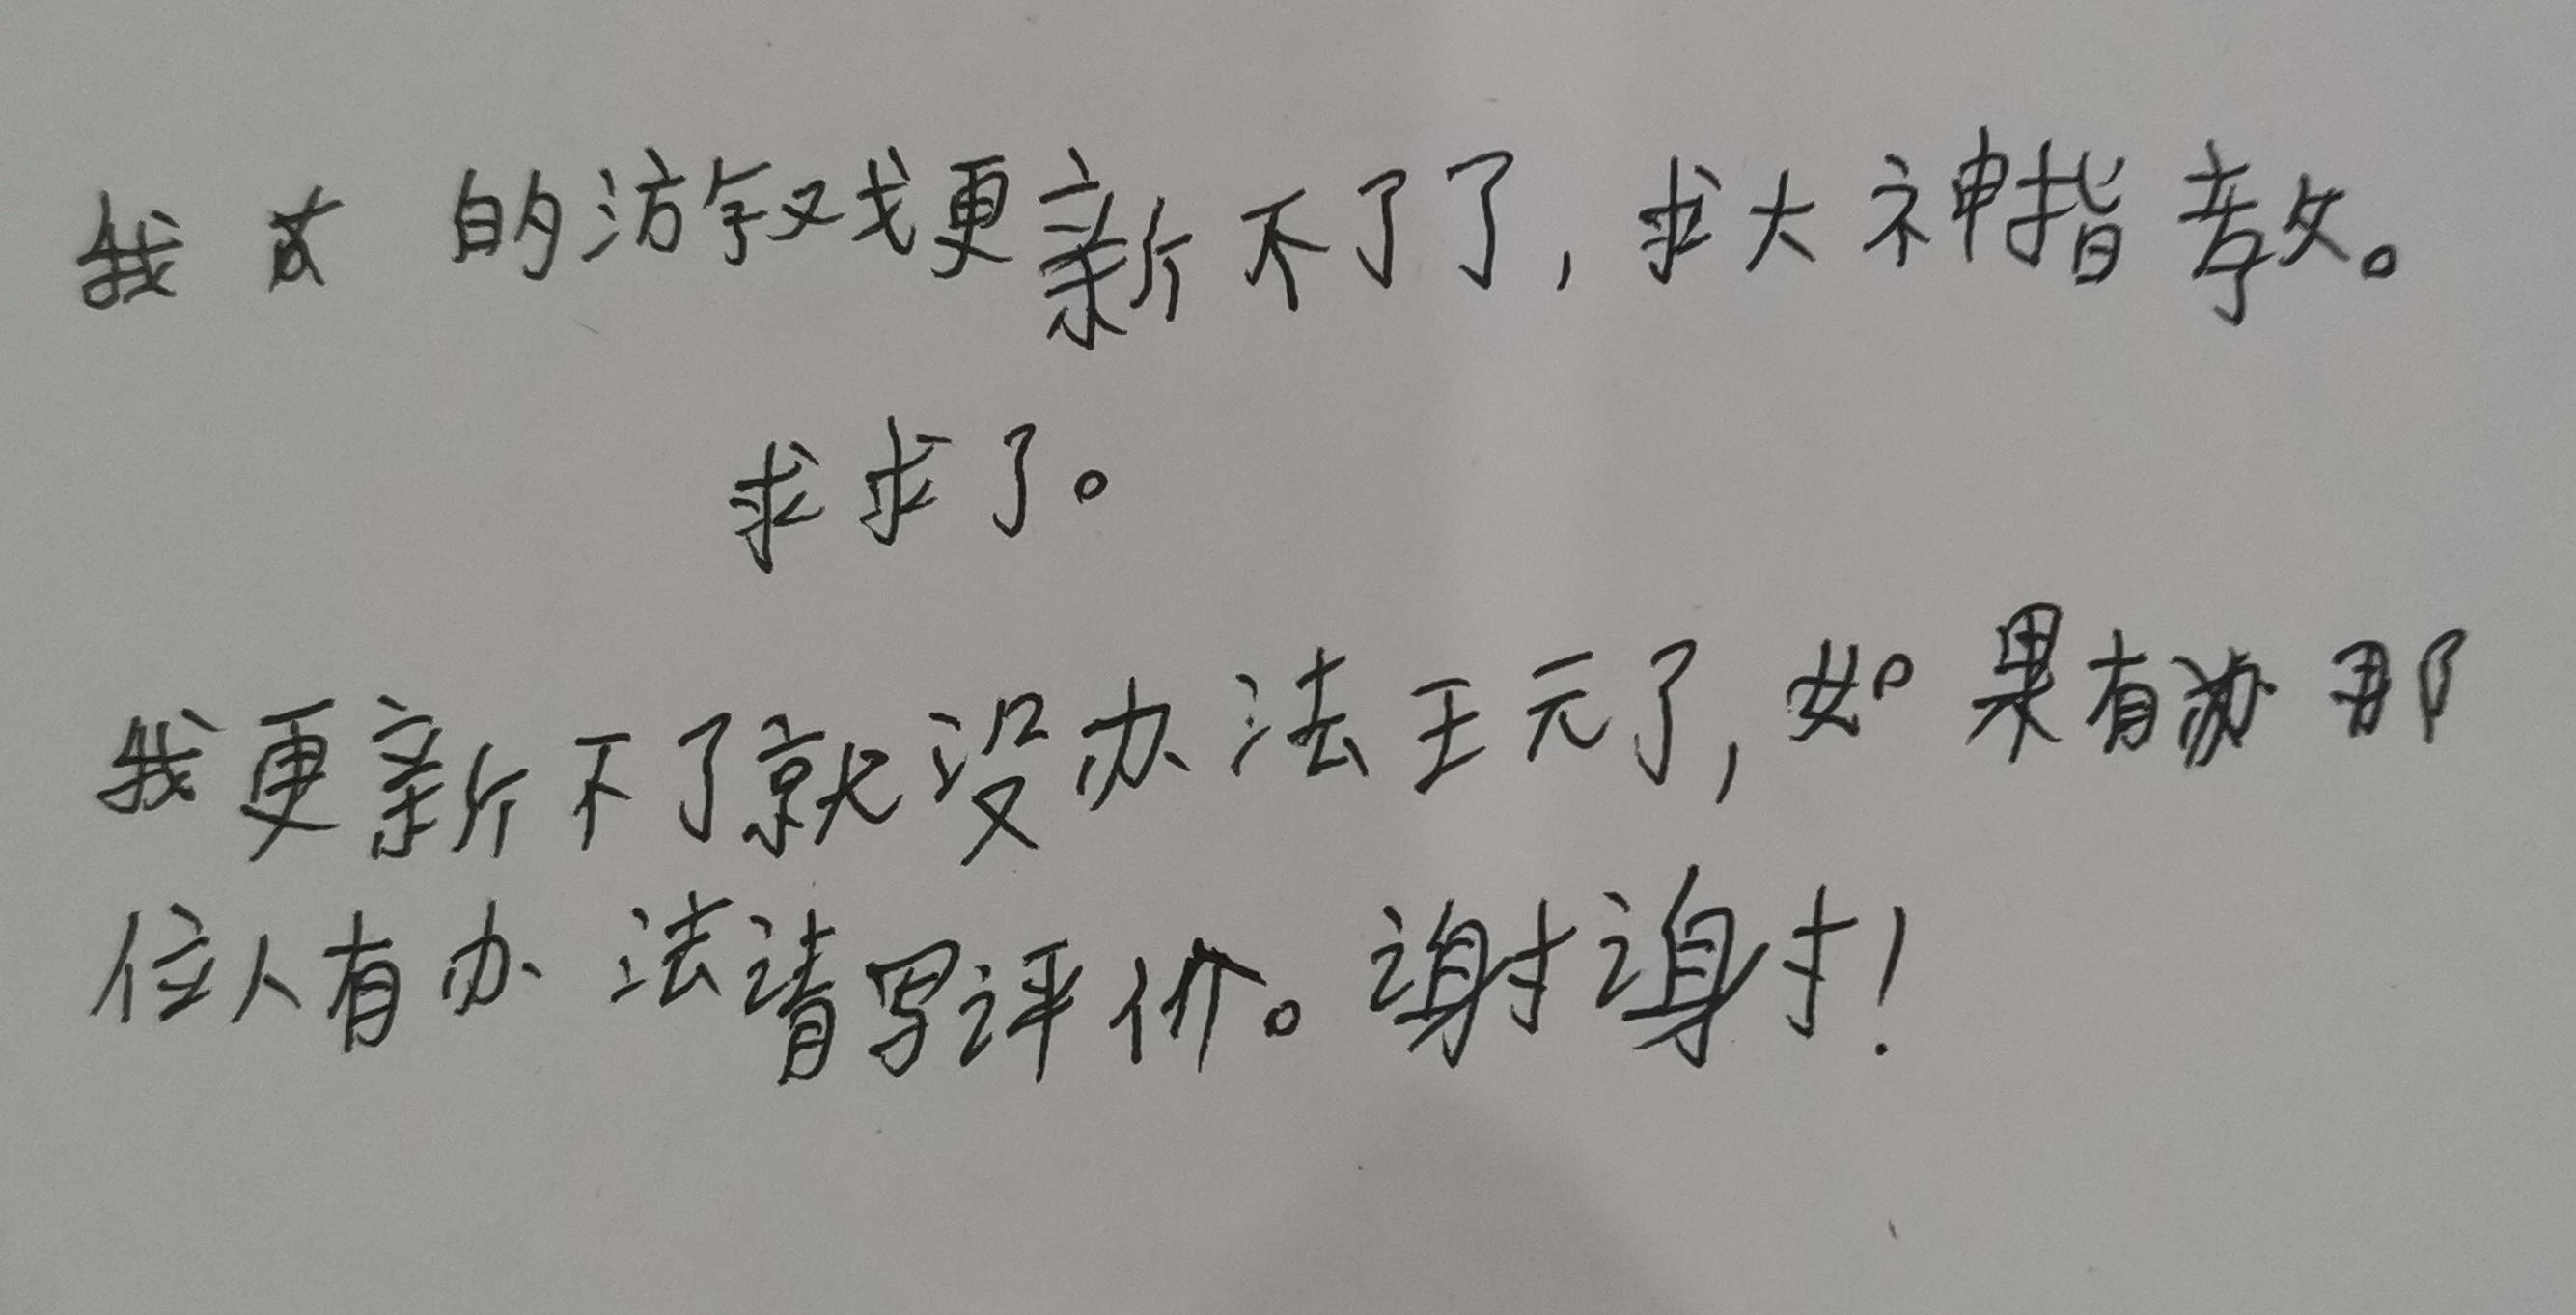 我的游戏更新不了了，求大神指教。
求求了。
我更新不了就没办法王元了，如果有那
位人有办法请写评价。谢谢！